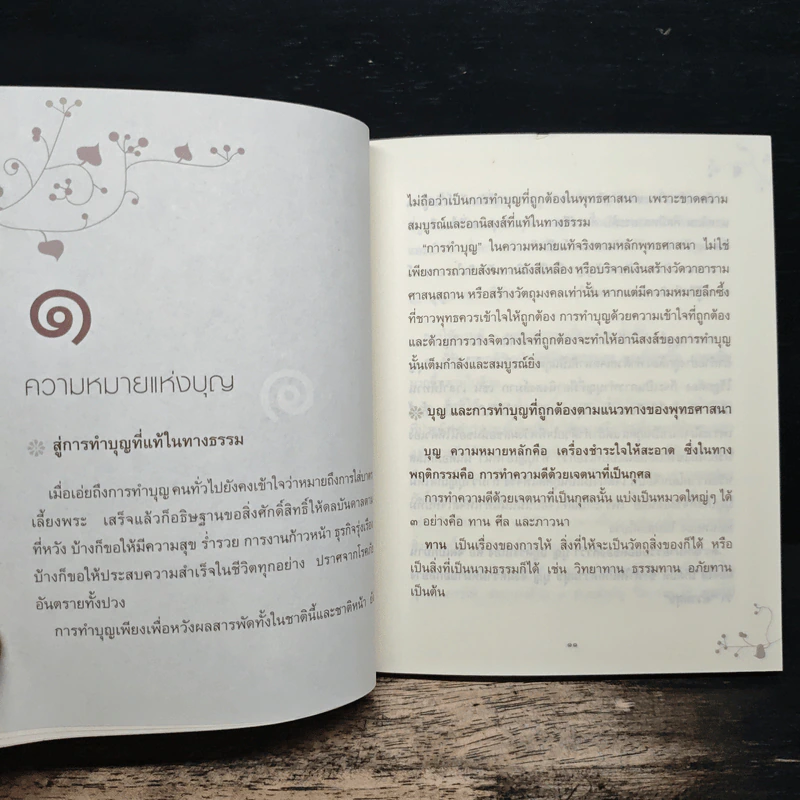 ๑
ความหมายแห่งบุญ
สู่การทำบุญที่แท้ในทางธรรม
เมื่อเอ่ยถึงการทำบุญ คนทั่วไปยังคงเข้าใจว่าหมายถึงการใส่บาตร
เลี้ยงพระ เสร็จแล้วก็อธิษฐานขอสิ่งศักดิ์สิทธิ์ให้ดลบันดาลตาม
ที่หวัง บ้างก็ขอให้มีความสุข ร่ำรวย การงานก้าวหน้า ธุรกิจรุ่งเรือง
บ้างก็ขอให้ประสบความสำเร็จในชีวิตทุกอย่าง ปราศจากโรคภัย
อันตรายทั้งปวง
การทำบุญเพียงเพื่อหวังผลสารพัดทั้งในชาตินี้และชาติหน้า
ไม่ถือว่าเป็นการทำบุญที่ถูกต้องในพุทธศาสนา เพราะขาดความ
สมบูรณ์และอานิสงส์ที่แท้ในทางธรรม
“การทำบุญ” ในความหมายแท้จริงตามหลักพุทธศาสนา ไม่ใช่
เพียงการถวายสังฆทานถังสีเหลือง หรือบริจาคเงินสร้างวัดวาอาราม
ศาสนสถาน หรือสร้างวัตถุมงคลเท่านั้น หากแต่มีความหมายลึกซึ้ง
ที่ชาวพุทธควรเข้าใจให้ถูกต้อง การทำบุญด้วยความเข้าใจที่ถูกต้อง
และด้วยการวางจิตวางใจที่ถูกต้องจะทำให้อานิสงส์ของการทำบุญ
นั้นเต็มกำลังและสมบูรณ์ยิ่ง
บุญ และการทำบุญที่ถูกต้องตามแนวทางของพุทธศาสนา
บุญ ความหมายหลักคือ เครื่องชำระใจให้สะอาด ซึ่งในทาง
พฤติกรรมคือ การทำความดีด้วยเจตนาที่เป็นกุศล
การทำความดีด้วยเจตนาที่เป็นกุศลนั้น แบ่งเป็นหมวดใหญ่ๆ ได้
๓ อย่างคือ ทาน ศีล และภาวนา
ทาน เป็นเรื่องของการให้ สิ่งที่ให้จะเป็นวัตถุสิ่งของก็ได้ หรือ
เป็นสิ่งที่เป็นนามธรรมก็ได้ เช่น วิทยาทาน ธรรมทาน อภัยทาน
เป็นต้น
๑๑